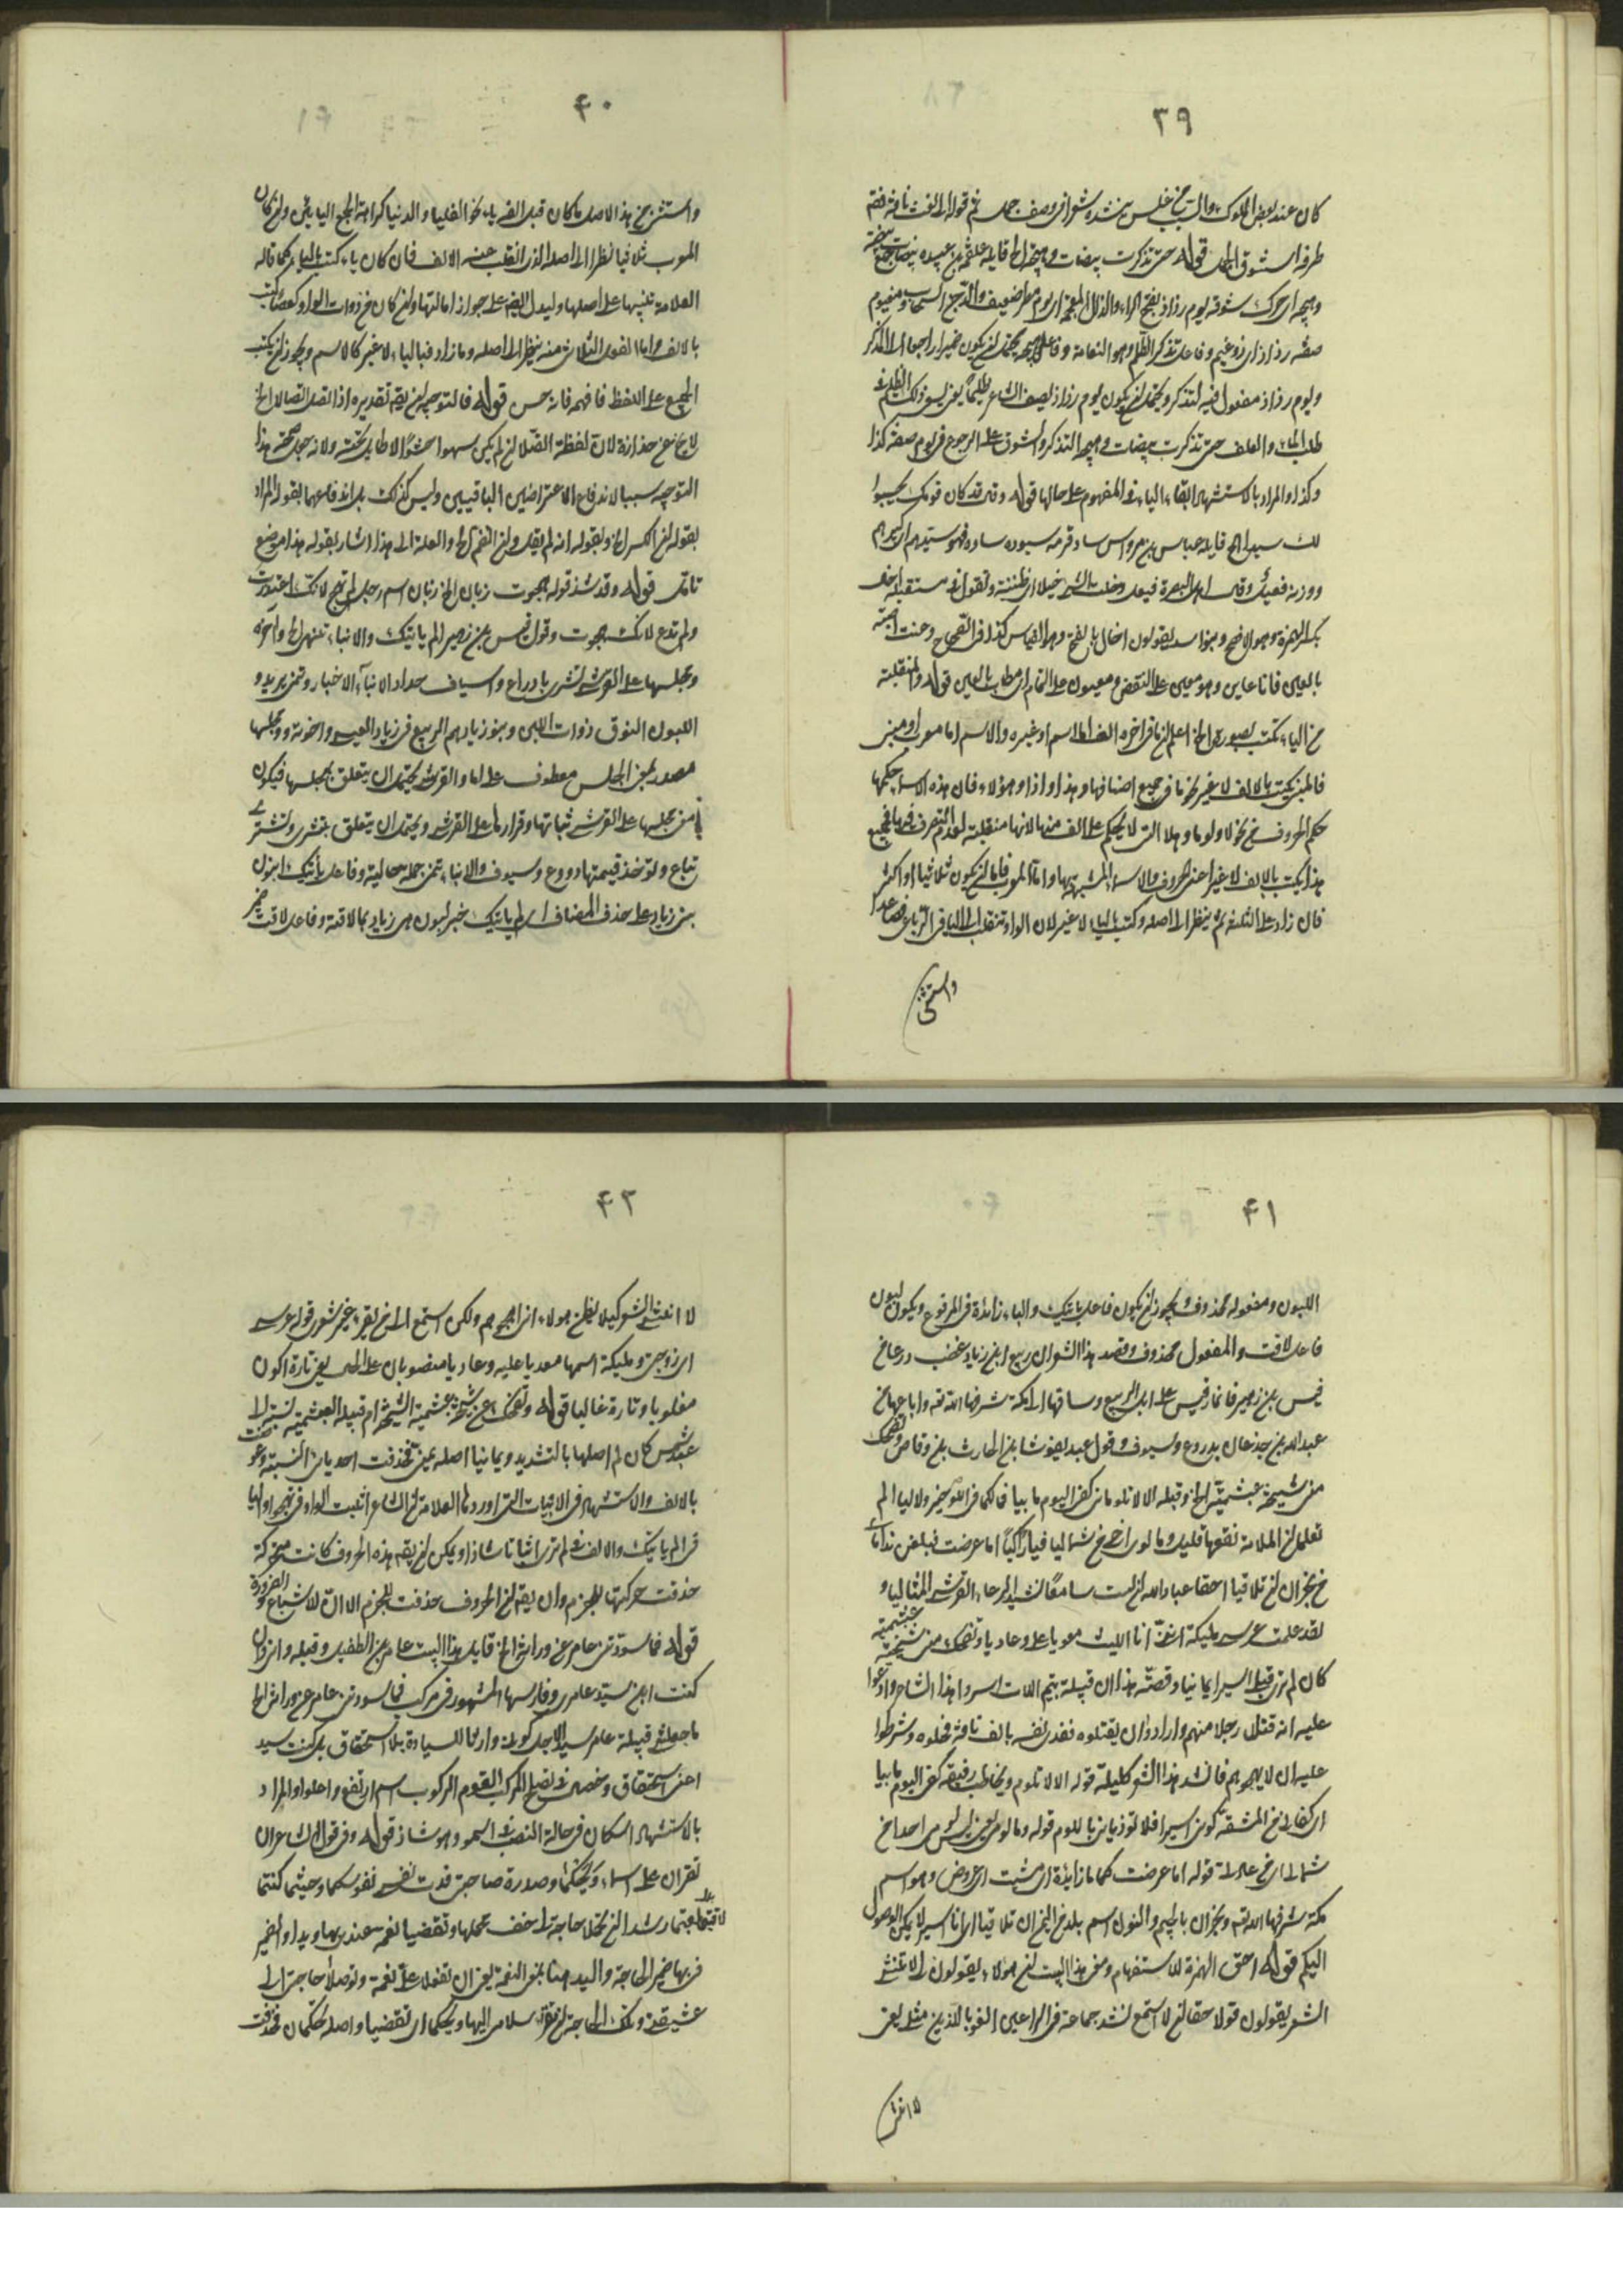 ٣٩
كان عند بعض الملوك والمسيب بن علس ينشده شعرا في وصف جمل ثم قوله الى نعت ناقة فقم
طرفة استنوق الجمل قوله حتى تذكر بيضات وهيجه الخ قايله علقمة بن عبيده بيضات جمع بيضة
وهيجه اى حرك شوقه يوم رذاذ بفتح الراء والذال المعجمة اى يوم مطر ضعيف والدجن السحاب ومغيوم
صفة رذاذ اى ذو غيم وفاعل تذكر الظلم وهو النعامة وفاعل هيجه يحتمل ان يكون ضميرا راجعا الى التذكر
ويوم رذاذ مفعول فيه لتذكر ويحتمل ان يكون يوم رذاذ يصف الشاعر ظليما يعنى
طلب الماء والعلف حتى تذكرت بيضات وهيجه التذكر والشوق على الرجوع فى يوم صفته كذا
وكذا والمراد بالاستشهاد ابقاء الياء فى المغيوم على حالها قوله وقد كان قومك يحسبوا
لك سيدا الخ قايله عباس بن مرداس ساد قومه سيوده سادة فهو سيدهم اى كبيرهم
ووزنه فعيل وقال اهل البصرة فيعل وخلت الشىء خيلا اى ظننته وتقول فى مستقبله اخال
بكسر الهمزة وهو الافصح وبنو اسد يقولون اخال بالفتح وهو القياس كذا فى الصحاح وعنت اصبته
بالعين فانا عاين وهو معين على النقص ومعيون على التمام اى مصاب بالعين قوله والمنقلبة
من الياء تكتب بصورتها الخ اعلم ان ما فى اخره الف اما اسم او غيره والاسم اما معرب او مبنى
فالمبنى يكتب بالالف لا غير نحو ما فى جميع اصنافها وهذا واذا وهؤلاء فان هذه الاسماء حكمها
حكم الحروف نحو لا ولو ما وهلا التى لا يحكم على الف منها لانها منقلبة لعدم التصرف فيها فجميع
هذا يكتب بالالف لا غير اعنى الحروف والاسماء المشبهة بها واما المعرب فاما ان يكون ثلاثيا او اكثر
فان زاد على الثلثة لم ينظر الى اصله وكتب بالياء لا غير لان الواو تنقلب الى الياء فى الرباعى فصاعدا
واستثنى
٤٠
واستثنى من هذا الاصل ما كان قبل الفه ياء نحو العليا والدنيا كراهة الجمع اليائين وان كان
المعرب ثلاثيا نظر الى اصله الذى انقلب عنه الالف فان كان ياء كتب بالياء كما قاله
العلامة تنبيها على اصلها وليدل ايضا على جواز امالتها وان كان من ذوات الواو كعصا كتب
بالالف واما الفعل الثلاثى منه ينظر الى اصله وما زاد فبالياء لا غير كالاسم ويجوز ان يكتب
الجميع على اللفظ فافهمه فانه حسن قوله فالتوجيه ان يقم تقديره اذا اتصل اتصالا الخ
لا يخ عن حذازة لان لفظة اتصالا ان لم يكن سهوا حشوا لا طايل تحته ولانه جعل صحة هذا
التوجيه سببا لاندفاع الاعتراضين الباقيين وليس كذلك بل اندفاعهما بقوله المراد
بقوله ان الكسر الخ وبقوله انه لم يقل وان انضم الخ والعلة الى هذا اشار بقوله هذا موضع
تامل قوله وقد شذ قوله هجوت زبان الخ زبان اسم رجل لم تهج لانك اعتذرت
ولم تدع لانك هجوت وقول قيس بن زهير الم ياتيك والانباء تنمى الخ واخره
ومحبسها على القرشى تشرى بادراع واسياف حداد الانباء الاخبار وتنمى يزيد و
اللبون النوق ذوات اللبن وبنو زياد هم الربيع بن زياد العبسى واخوته ومحبسها
مصدر بمعنى الحبس معطوف على ما والقرشى يحتمل ان يتعلق بمحبسها فيكون
من محبسها على القرشى ثباتها وقرارها على القرشى ويحتمل ان يتعلق بتشرى وتشترى
تباع ويؤخذ قيمتها دروع وسيوف والانباء تنمى جملة حالية وفاعل ياتيك لبون
بنى زياد على حذف المضاف اى الم ياتيك خبر لبون بنى زياد بما لاقته وفاعل لاقت ضمير
٤١
اللبون ومفعوله محذوف ويجوز ان يكون فاعل ياتيك والباء زائدة فى المرفوع ويكون لبون
فاعل لاقت والمفعول محذوف وقصة هذا الشعر ان ربيع ابن زياد غضب درعا من
قيس بن زهير فاغار قيس على ابل الربيع وساقها الى مكة شرفها الله تعه وباعها من
عبد الله بن جذعان بدروع وسيوف وقول عبد يغوث ابن الحارث بن وقاص وتضحك
منى شيخة عبشمية الخ وقبله الا لا تلومانى كفى اليوم ما بيا فما لكما فى اللوم خير ولا ليا الم
تعلما ان الملامة نفعها قليل وما لومى اخى من شماليا فيا راكبا اما عرضت فبلغن نداماى
من نجران ان لا تلاقيا احقا عباد الله ان لست سامعا نشيد الرعاء المعزبين المتاليا و
لقد علمت عرسى مليكة اننى انا الليث معديا عليه وعاديا وتضحك منى شيخة عبشمية
كان لم ترى قبلى اسيرا يمانيا وقصة هذا ان قبيلة تيم اللات اسروا هذا الشاعر وادعوا
عليه انه قتل رجلا منهم وارادوا ان يقتلوه ففدى نفسه بالف ناقة فخلوه وشرطوا
عليه ان لا يهجوهم فانشد هذا الشعر كليلة قوله الا لا تلوم ويخاطب رفيقه كفى اليوم ما بيا
اى كفانى من المشقة كونى اسيرا فلا تؤذيانى باللوم قوله وما لومى يعنى ليس لومى احدا من
شمالى اى من عادتى قوله اما عرضت كلمة ما زايدة اى مشيت الى عروض وهو اسم
مكة شرفها الله تعه ونجران بالجيم والنون اسم بلد من اليمن ان لا تلاقيا اى انا اسير لا يمكن الوصول
اليكم قوله احق الهمزة للاستفهام ومعنى هذا البيت ان هؤلاء يقولون لى لا تنشد
الشعر يقولون قولا حقا ان لا استمع نشد جماعة فى الراعين الغربا للذين مثلى يعنى
لا انشد
٤٢
لا انشد الشعر كيلا يظن هؤلاء انى اهجوهم ولكن استمع الى من يقرء غير شعرى قوله عرسى
اى زوجتى ومليكة اسمها معديا عليه وعاديا منصوبان على الحال يعنى تارة اكون
مغلوبا وتارة غالبا قوله وتضحك منى شيخة عبشمية الشيخة ام قبيلة العبشمية نسبة الى
عبد شمس كان لم اصلها بالتشديد ويمانيا اصله يمنى فحذفت احد يائى النسبة وعوضت
بالالف والاستشهاد فى الابيات التى اوردها العلامة ان الشاعر اثبت الواو فى تهجو والياء
فى الم ياتيك والالف فى لم ترى اثباتا شاذا ويمكن ان يقم هذه الحروف كانت متحركة
حذفت حركتها للجزم وان يقم ان الحروف حذفت للجزم الا ان للاشباع للضرورة
قوله فما سودتنى عامر عن وراثة الخ قايل هذا البيت عامر بن الطفيل وقبله وانى وان
كنت ابن سيد عامر وفارسها المشهور فى كل مركب فما سودتنى عامر عن وراثة الخ
ما جعلنى قبيلة عامر سيدا لاجل كونى وارثا للسيادة بلا استحقاق بل كنت سيد
اعن استحقاق وخصص فى نفسى المركب القوم الركوب اسم ارتفع واعلوا والمراد
بالاستشهاد اسكان فى حالة النصب اسمو وهو شاذ قوله وفى قول الشاعر ان
تقران على اسماء ويحكما وصدره صاحبى فدت نفسى نفوسكما وحيثما كنتما
لاقيتما رشدا ان تحملا حاجة لى خف محملها وتصنعا نعمة عندى بها ويدا والضمير
فى بها ضمير الحاجة واليد هنا بمعنى النعمة يعنى ان تفعلا على نعمة وتوصلا حاجتى الى
عشيقتى وتلك الحاجة ان تقرا سلامى اليها ويحكما ان تقضيا واصله تحملان فحذفت